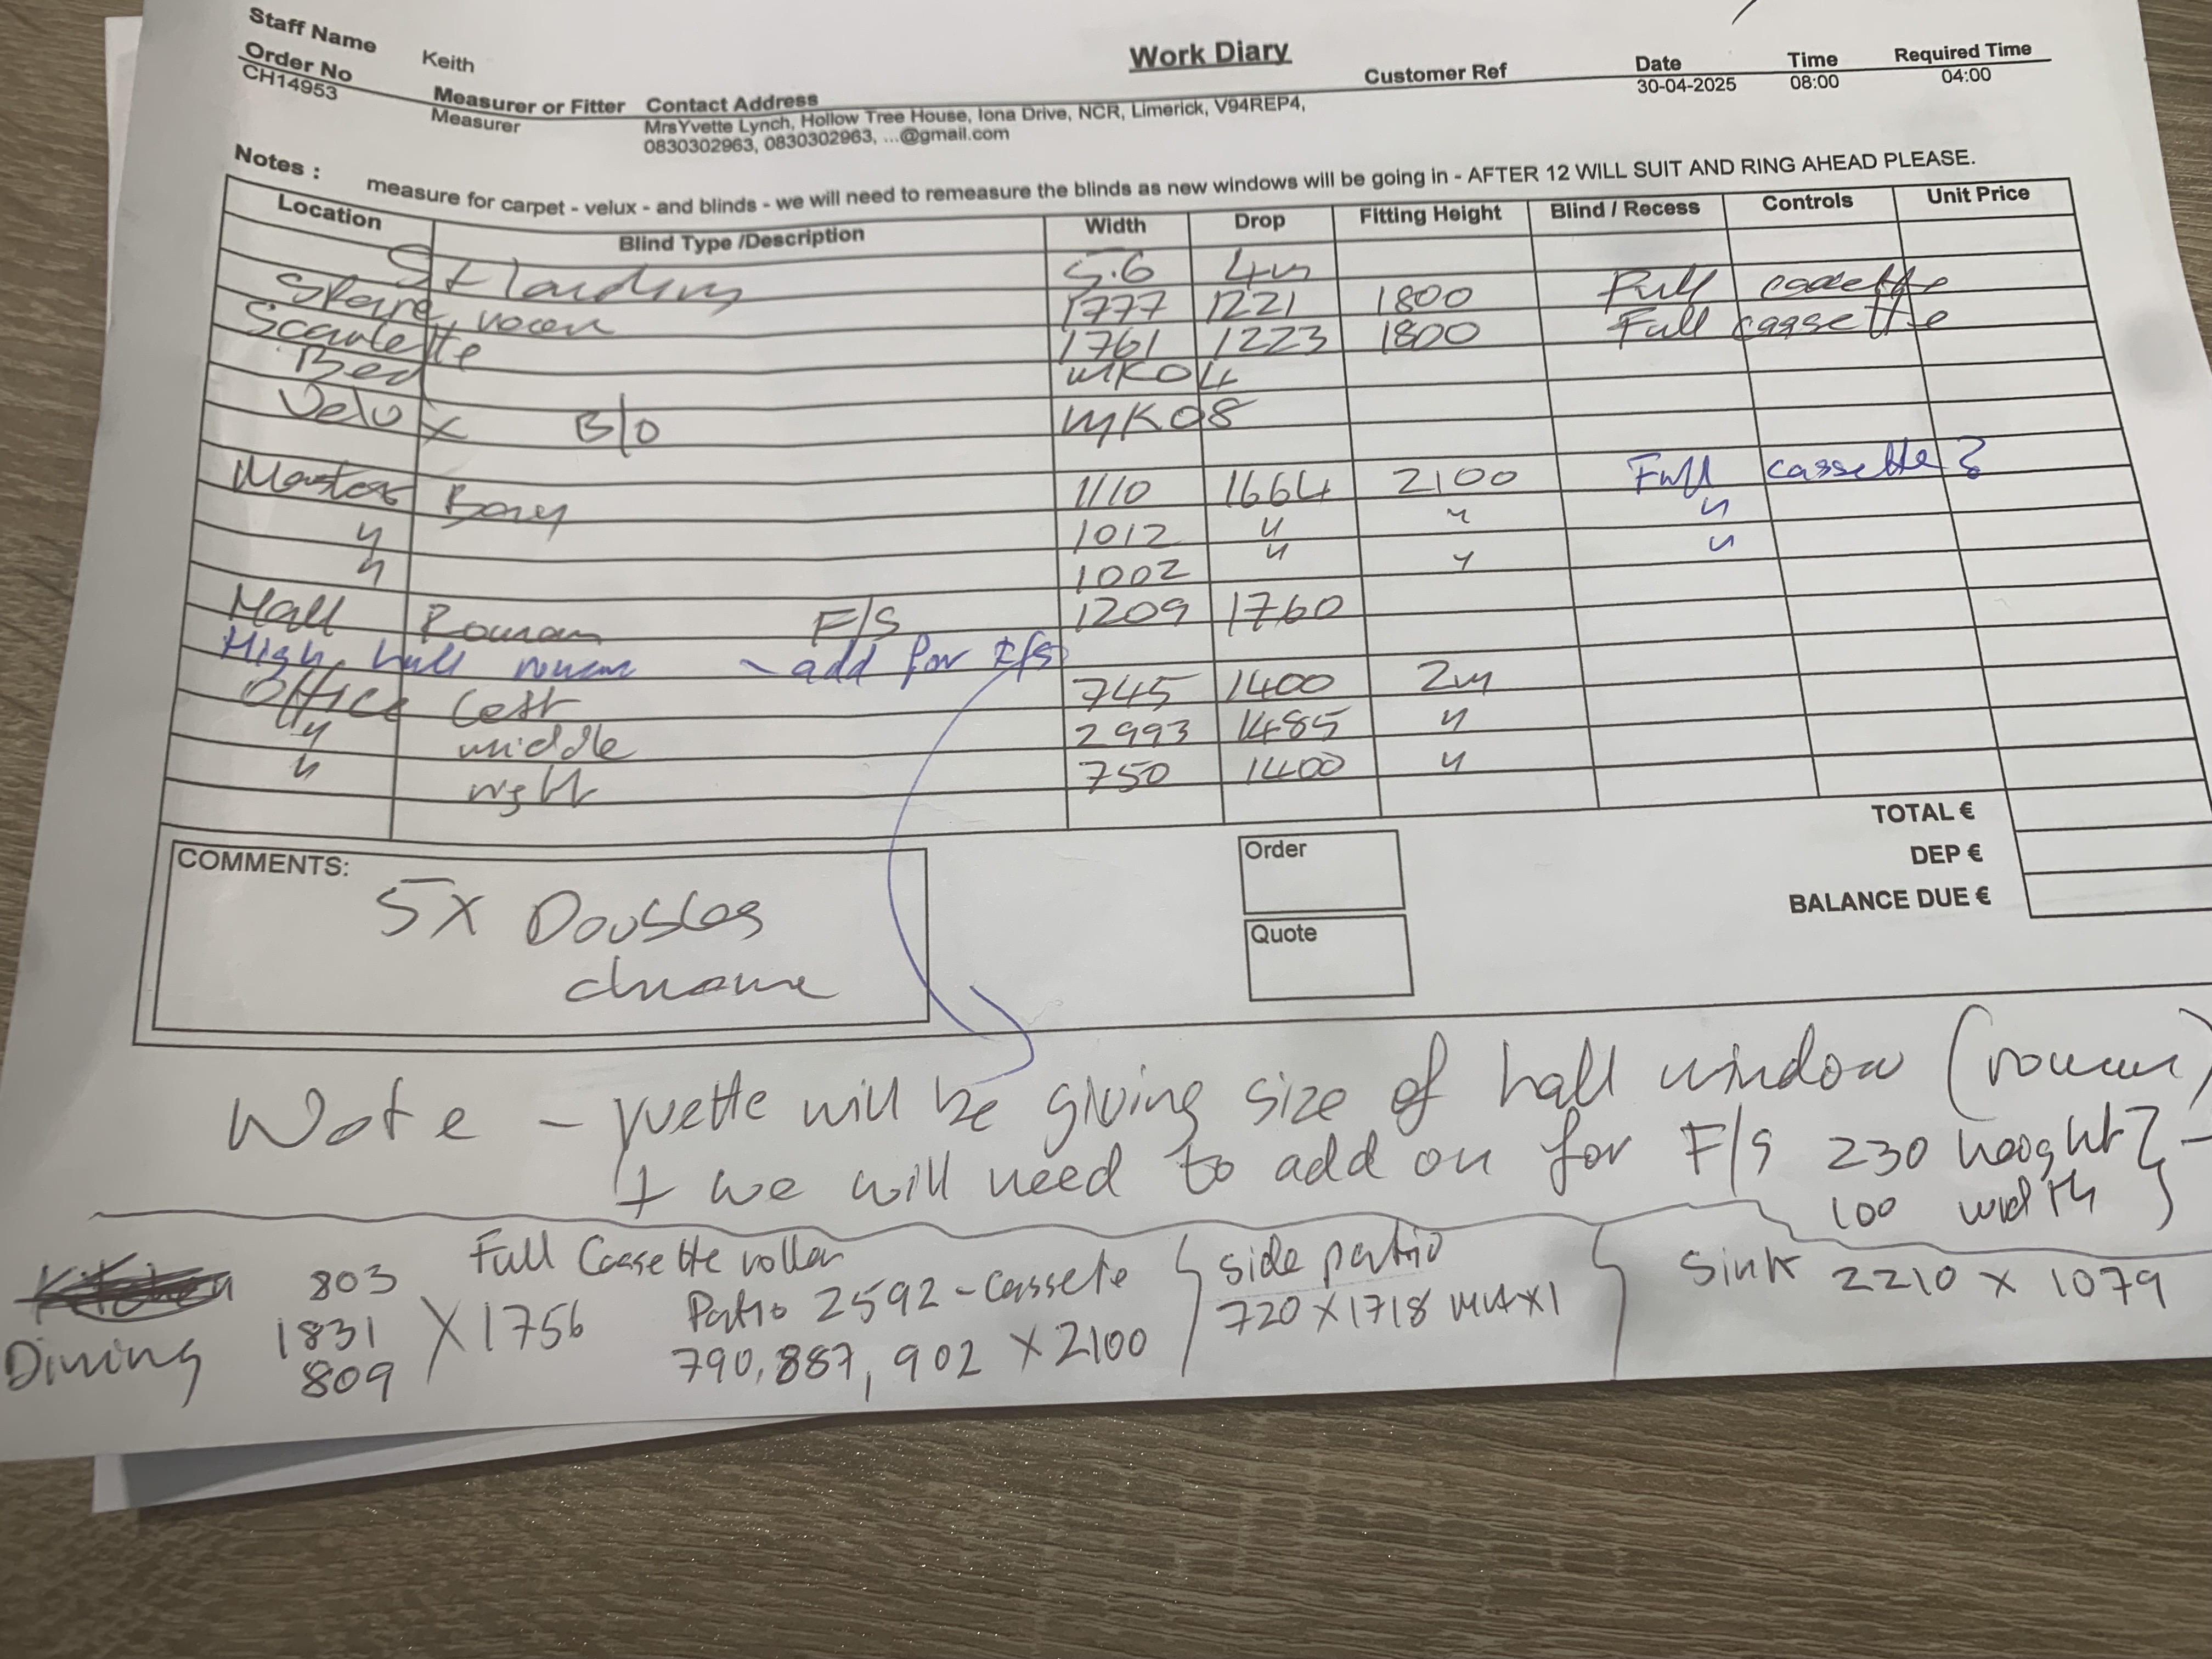 Work Diary
Staff Name Keith
Order No Measurer or Fitter Contact Address Customer Ref Date Time Required Time
CH14953 Measurer MrsYvette Lynch, Hollow Tree House, Iona Drive, NCR, Limerick, V94REP4, 30-04-2025 08:00 04:00
0830302963, 0830302963, ...@gmail.com
Notes : measure for carpet - velux - and blinds - we will need to remeasure the blinds as new windows will be going in - AFTER 12 WILL SUIT AND RING AHEAD PLEASE.
Location Blind Type /Description Width Drop Fitting Height Blind / Recess Controls Unit Price
landing 5.6 4m
Spare room 1777 1221 1800 Full cassette
Scarlette 1761 1223 1800 Full cassette
Bed MK04
Velux B/O MK08
Master Bay 1110 1664 2100 Full cassette
" 1012 " " "
" 1002 " " "
Hall Roman F/S 1209 1760
High hall roman - add for F/S
Office left 745 1400 2m
" middle 2993 1485 "
" right 750 1400 "
TOTAL €
DEP €
BALANCE DUE €
COMMENTS:
5X Doubles
chrome
Order
Quote
Note - Yvette will be giving size of hall window (roman)
+ we will need to add on for F/S 230 height
100 width
Kitchen 803 Full Cassette roller
Dining 1831 X 1756
809
Patio 2592 - cassete
790, 887, 902 X 2100
side patio
720 X 1718 MAX1
Sink 2210 X 1079